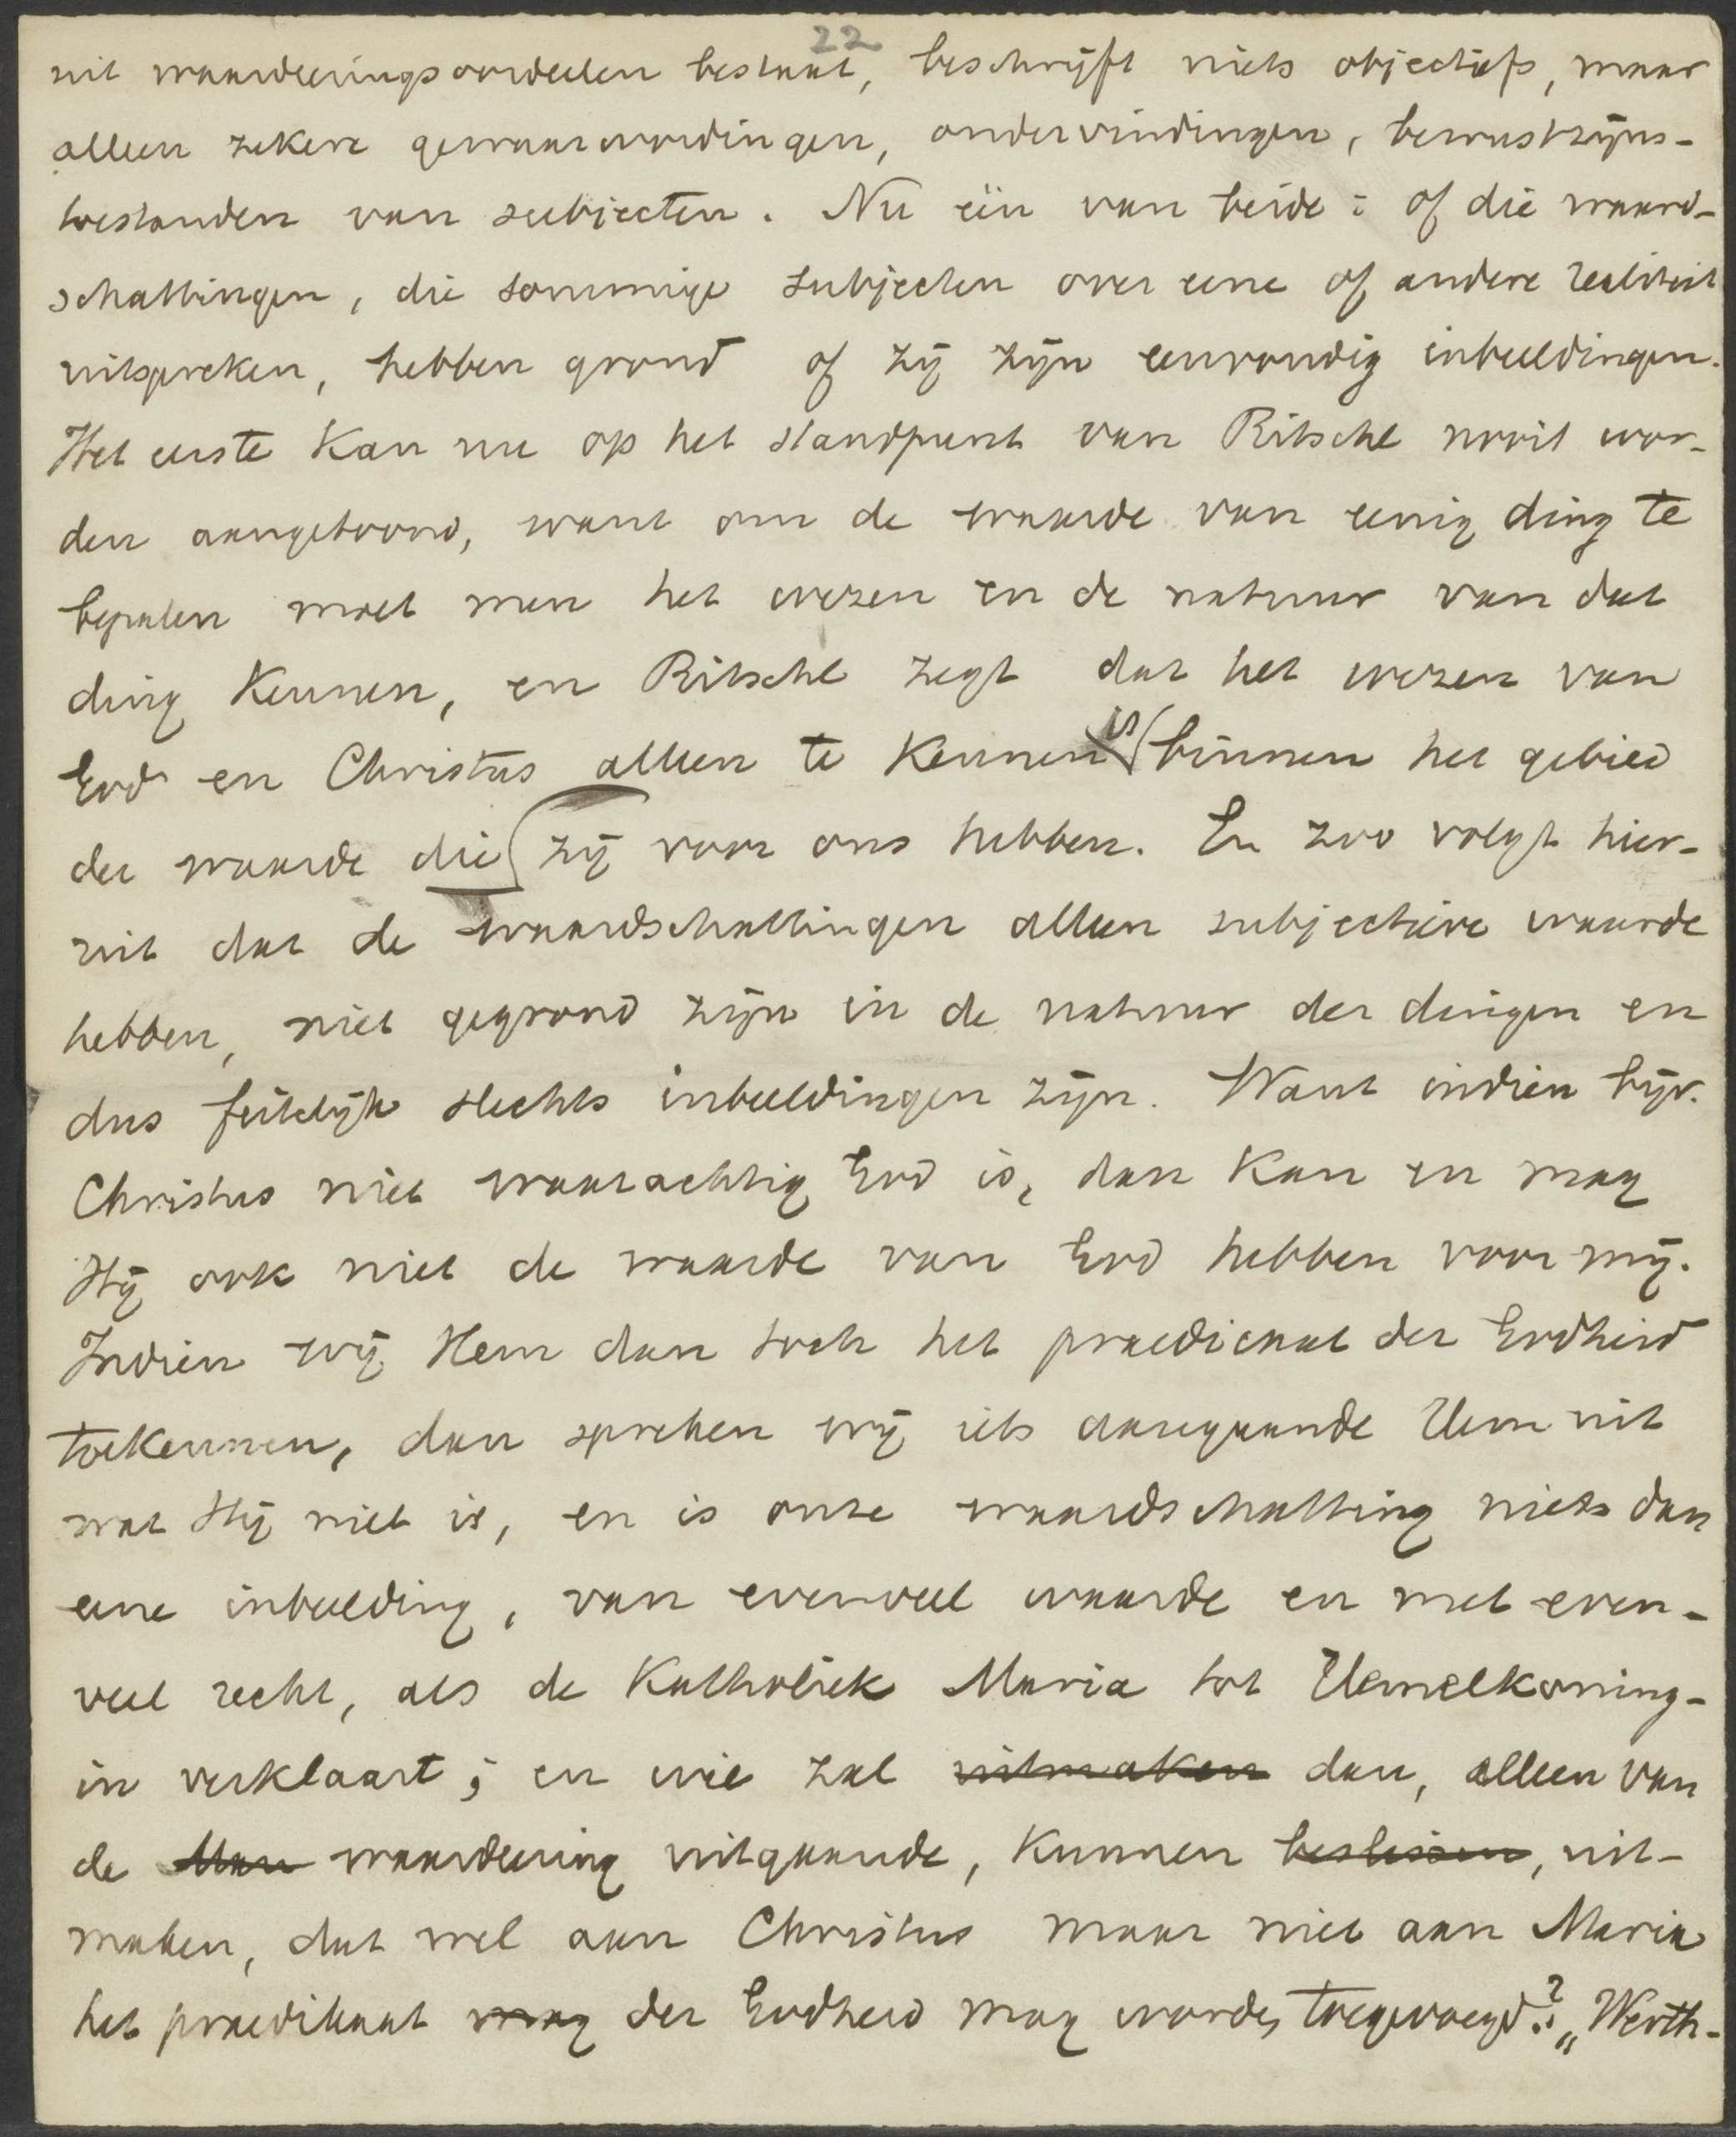 22
uit waardeeringsoordeelen bestaat, beschrijft niets objectiefs, maar
alleen zekere gewaarwordingen, ondervindingen, bewustzijns-
toestanden van subjecten. Nu één van beide: of die waard-
schattingen, die sommige subjecten over eene of andere realiteit
uitspreken, hebben grond of zij zijn eenvoudig inbeeldingen.
Het eerste kan nu op het standpunt van Ritschl nooit wor-
den aangetoond, want om de waarde van eenig ding te
bepalen moet men het wezen en de natuur van dat
ding kennen, en Ritschl zegt dat het wezen van
God en Christus alleen te kennen is binnen het gebied
der waarde die zij voor ons hebben. En zoo volgt hier-
uit dat de waardschattingen alleen subjectieve waarde
hebben, niet gegrond zijn in de natuur der dingen en
dus feitelijk slechts inbeeldingen zijn. Want indien bijv.
Christus niet waarachtig God is, dan kan en mag
Hij ook niet de waarde van God hebben voor mij.
Indien wij Hem dan toch het praedicaat der Godheid
toekennen, dan spreken wij iets aangaande Hem uit
wat Hij niet is, en is onze waardschatting niets dan
eene inbeelding, van evenveel waarde en met even-
veel recht, als de Katholiek Maria tot Hemelkoning-
in verklaart; en wie zal uitmaken dan, alleen van
de waardeering uitgaande, kunnen beslissen, uit-
maken, dat wel aan Christus maar niet aan Maria
het praedikaat mag der Godheid mag worden toegevoegd? „Werth-